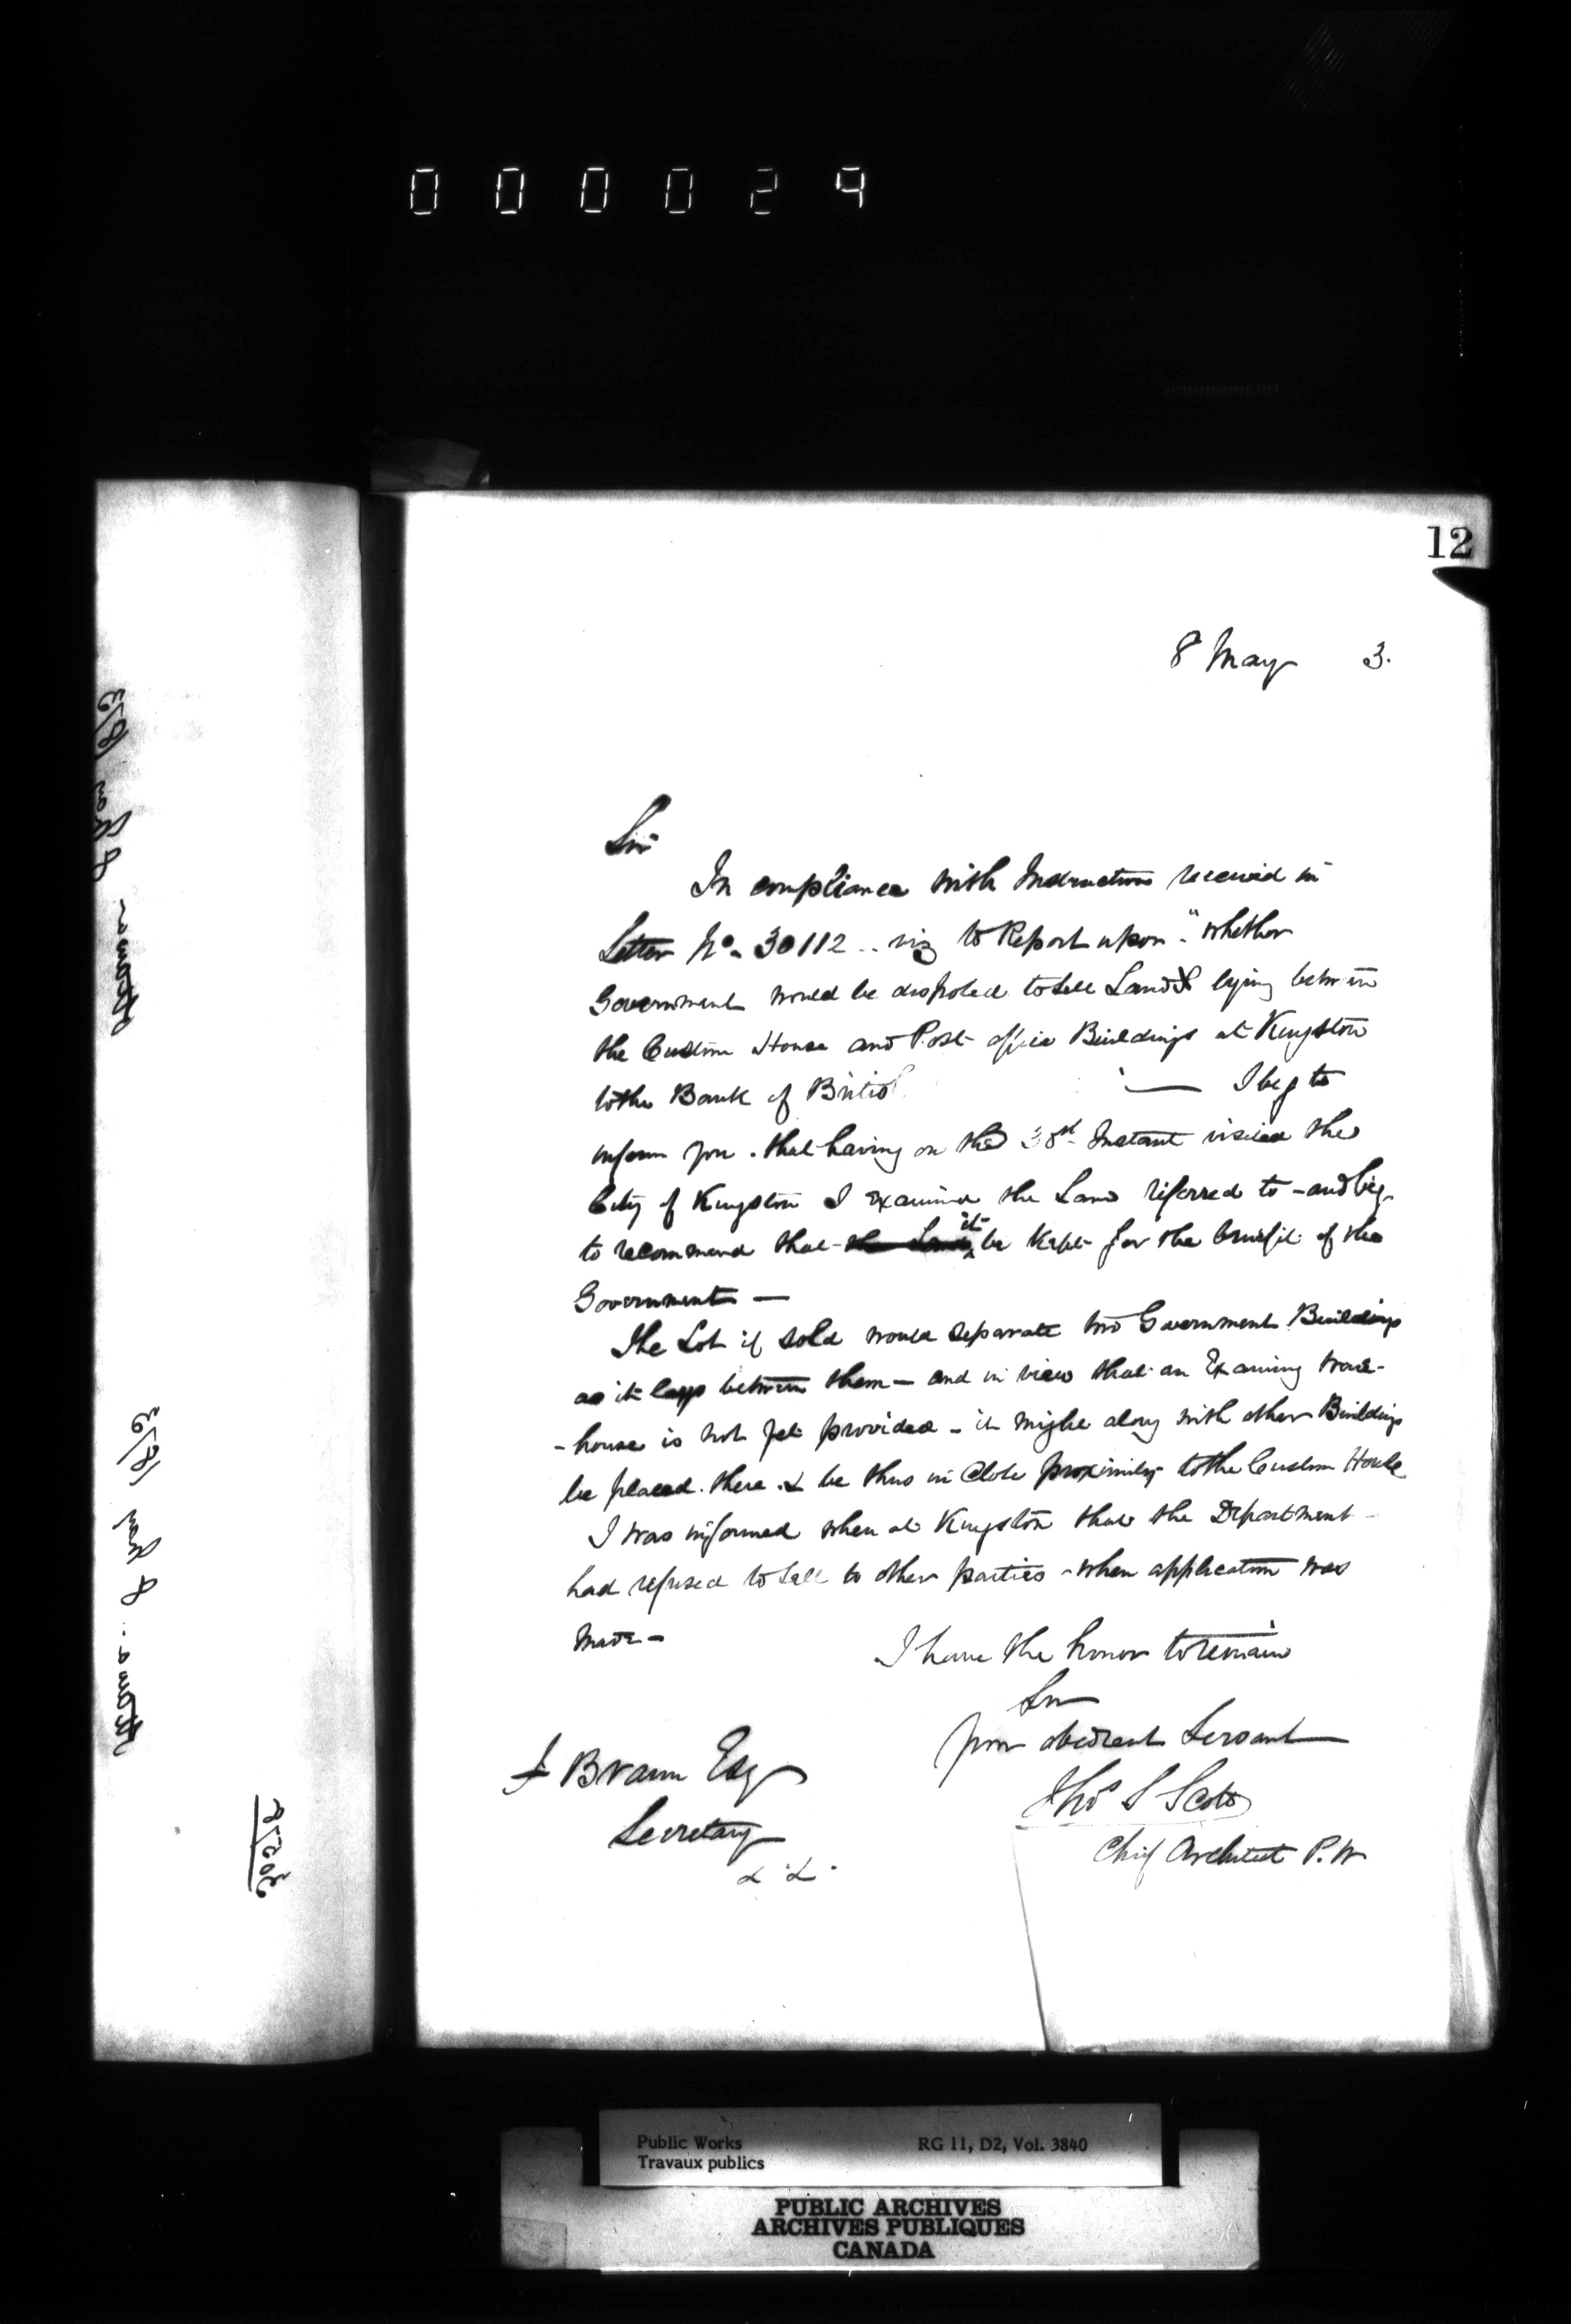 000029
12
8 May 3.
Sir
In compliance with Instructions received in
Letter No. 30112 .. viz to Report upon. "whether
Government would be disposed to sell Land lying between
the Custom House and Post office Buildings at Kingston
to the Bank of British
— I beg to
inform you. that having on the Instant visited the
City of Kingston I examined the Land referred to - and beg
to recommend that the Land it be kept for the benefit of the
Government —
The Lot if sold would separate two Government Buildings
as it lays between them — and in view that an Examing ware-
-house is not yet provided - it might along with other Buildings
be placed. there . & be thus in close proximity to the Custom House
I was informed when at Kingston that the Department
had refused to sell to other parties - when application was
made -
I have the honor to remain
Sir
your obedient Servant
Thos S Scott
Chief Architect P.W
F Braun Esq
Secretary
& &.
Ottawa 8 May 1873
Ottawa .. 8 May 1873
30518
Public Works RG 11, D2, Vol. 3840
Travaux publics
PUBLIC ARCHIVES
ARCHIVES PUBLIQUES
CANADA